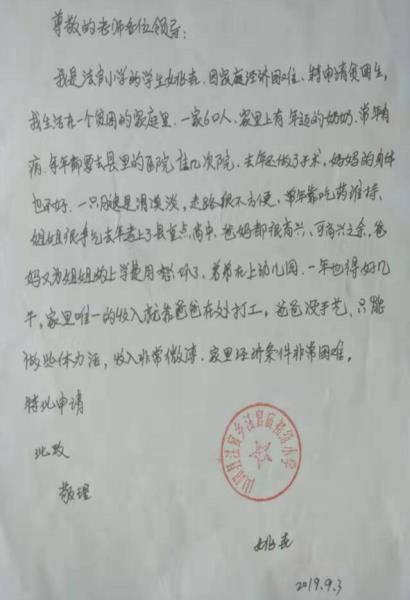 尊敬的老师各位领导:
我是法官小学的学生姚垚.因家庭经济困难.特申请贫困生,
我生活在一个贫困的家庭里.一家6口人.家里上有年迈的奶奶.常年有
病.每年都要去县里的医院住几次院.去年还做了手术,妈妈的身体
也不好.一只腿是滑膜炎,走路很不方便.常年靠吃药维持.
姐姐很争气去年考上了县重点高中.爸妈都很高兴.可高兴之余.爸
妈又为姐姐的上学费用愁坏了.弟弟在上幼儿园.一年也得好几
千,家里唯一的收入就靠爸爸在外打工,爸爸没手艺.只能
做些体力活,收入非常微薄.家里经济条件非常困难,
特此申请
此致
敬礼
山阳县法官乡法官庙初级小学
姚垚
2019.9.3